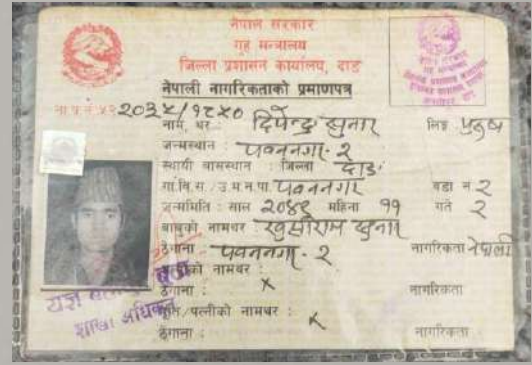 नेपाल सरकार
गृह मन्त्रालय
जिल्ला प्रशासन कार्यालय, दाङ
नेपाली नागरिकताको प्रमाणपत्र
ना.प्र.नं. ५२ २०३५/१८५०
नाम, थर : दिपेन्द्र सुनार लिङ्ग पुरुष
जन्मस्थान : पवननगर- २
स्थायी बासस्थान : जिल्ला दाङ
गा.वि.स./उ.म.न.पा. पवननगर वडा नं २
जन्ममिति : साल २०४९ महिना ११ गते २
बाबुको नामथर : खुसीराम सुनार
ठेगाना : पवननगर- २ नागरिकता नेपाली
नामथर :
ठेगाना : x नागरिकता
पति/पत्नीको नामथर : x
ठेगाना : नागरिकता
शाखा अधिकृत